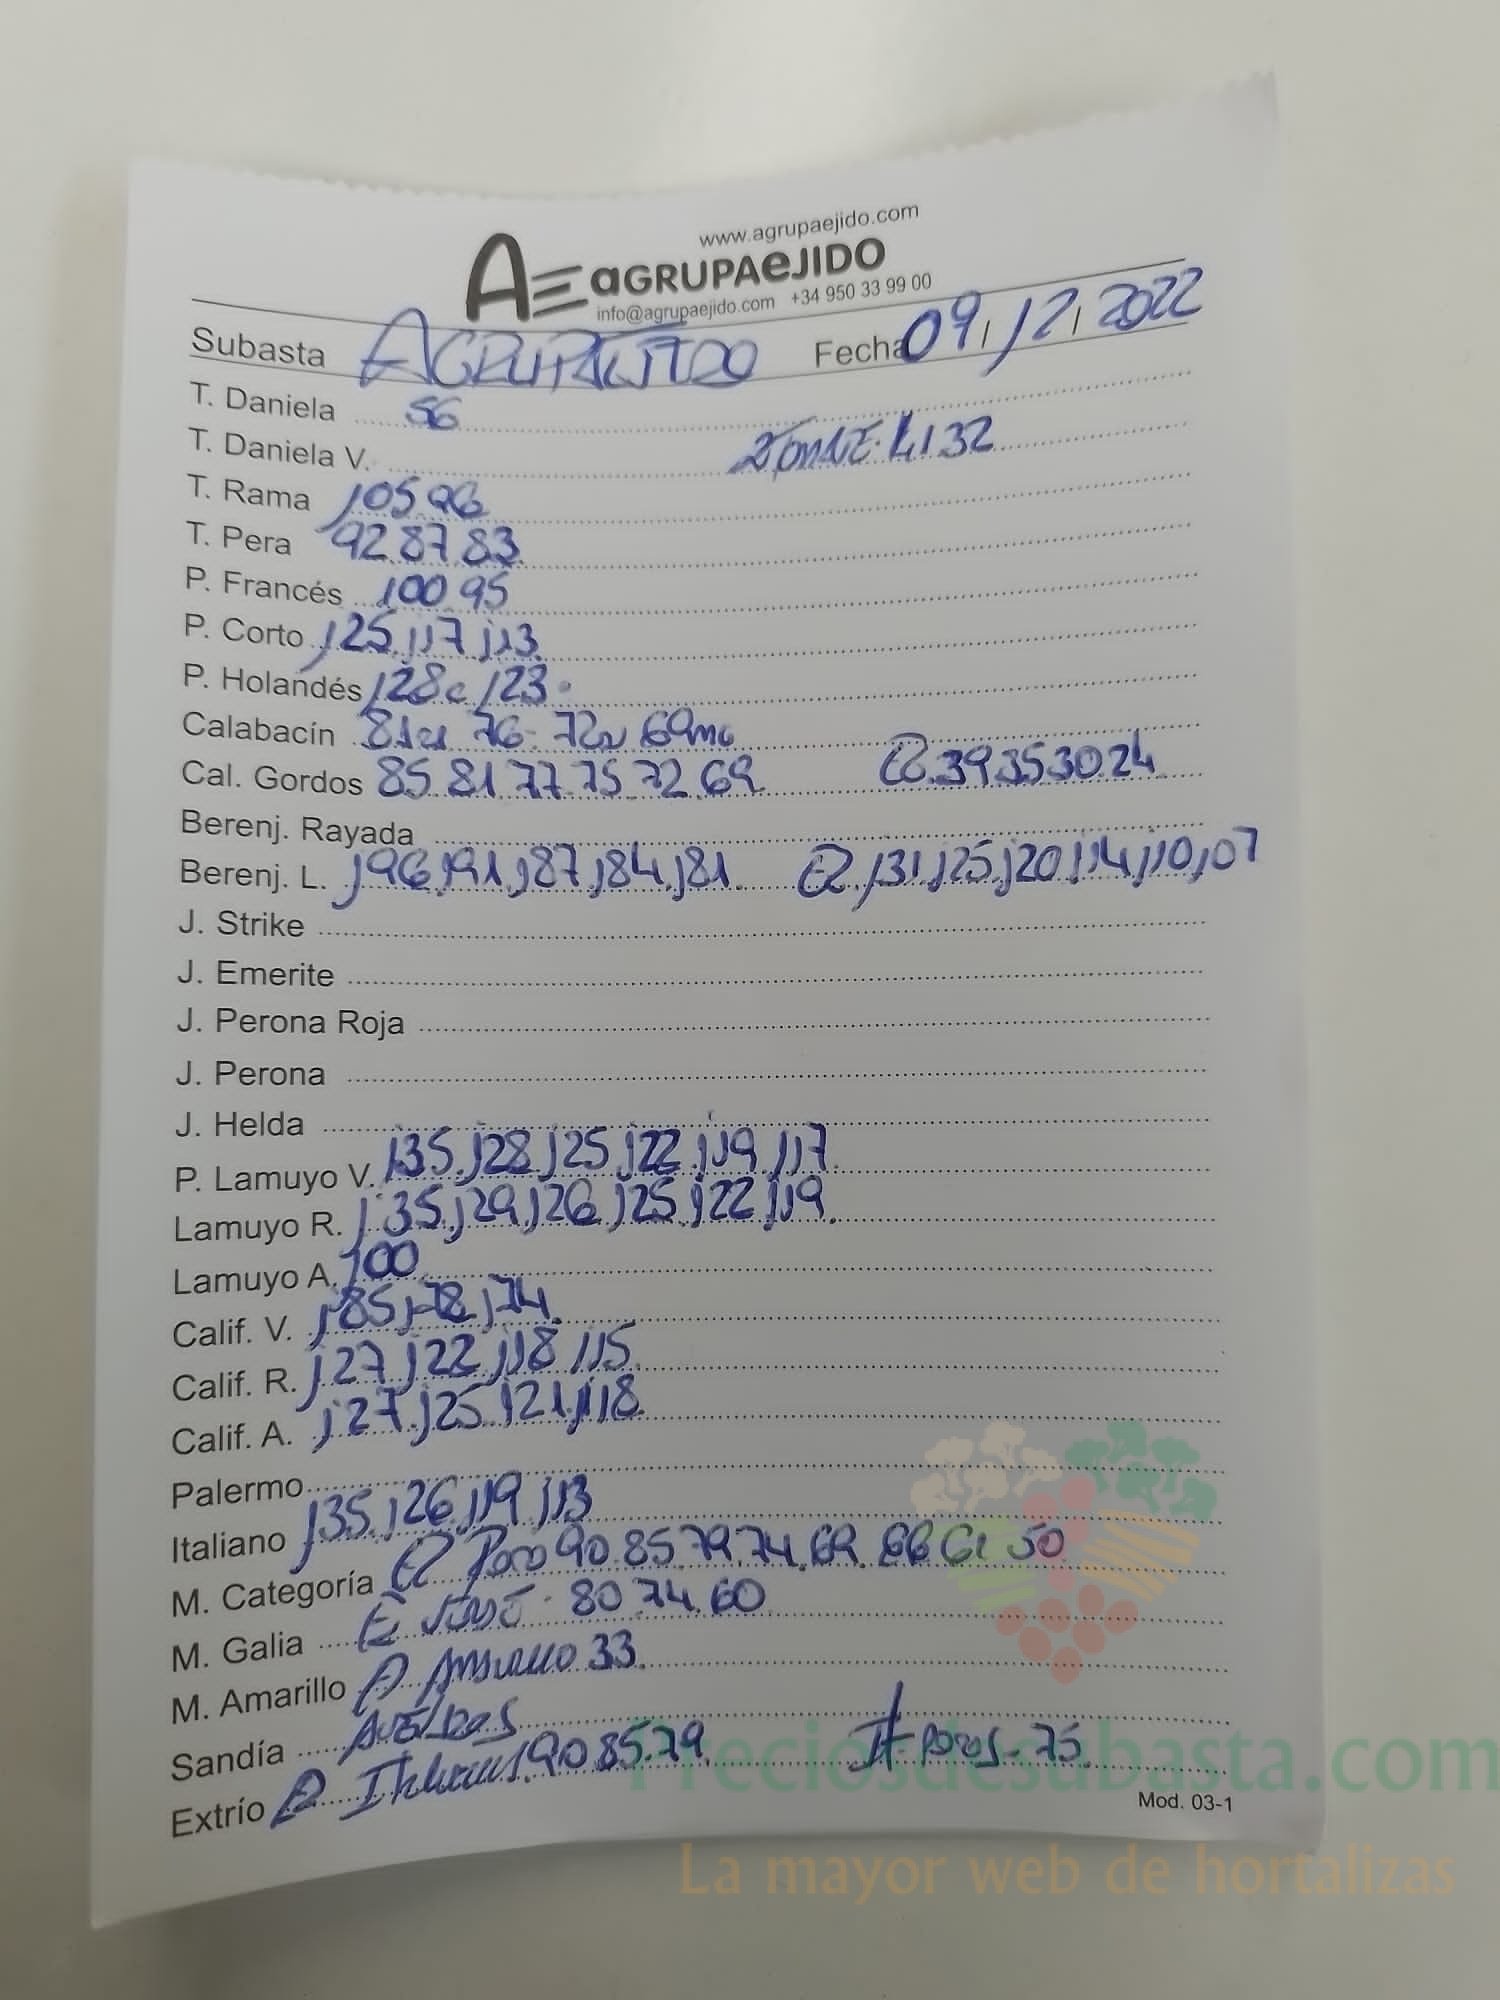 www.agrupaejido.com
AE aGRUPAeJIDO
info@agrupaejido.com +34 950 33 99 00
Subasta AGRUPAEJIDO Fecha 09/12/2022
T. Daniela 56
T. Daniela V. 41 32
T. Rama 105 96
T. Pera 92 87 83
P. Francés 100 95
P. Corto 125 117 113
P. Holandés 128c 123
Calabacín 76 72 69
Cal. Gordos 85 81 77 75 72 69 39 35 30 24
Berenj. Rayada
Berenj. L. 196 191 187 184 181 131 125 120 114 110 107
J. Strike
J. Emerite
J. Perona Roja
J. Perona
J. Helda
P. Lamuyo V. 135 128 125 122 119 117
Lamuyo R. 135 129 126 125 122 119
Lamuyo A. 100
Calif. V. 185 178 174
Calif. R. 127 122 118 115
Calif. A. 127 125 121 118
Palermo
Italiano 135 126 119 113
M. Categoría 90 85 79 74 69 66 61 50
M. Galia 80 74 60
M. Amarillo Amarillo 33
Sandía
Extrío 90 85 79 75
Mod. 03-1
Preciosdesubasta.com
La mayor web de hortalizas